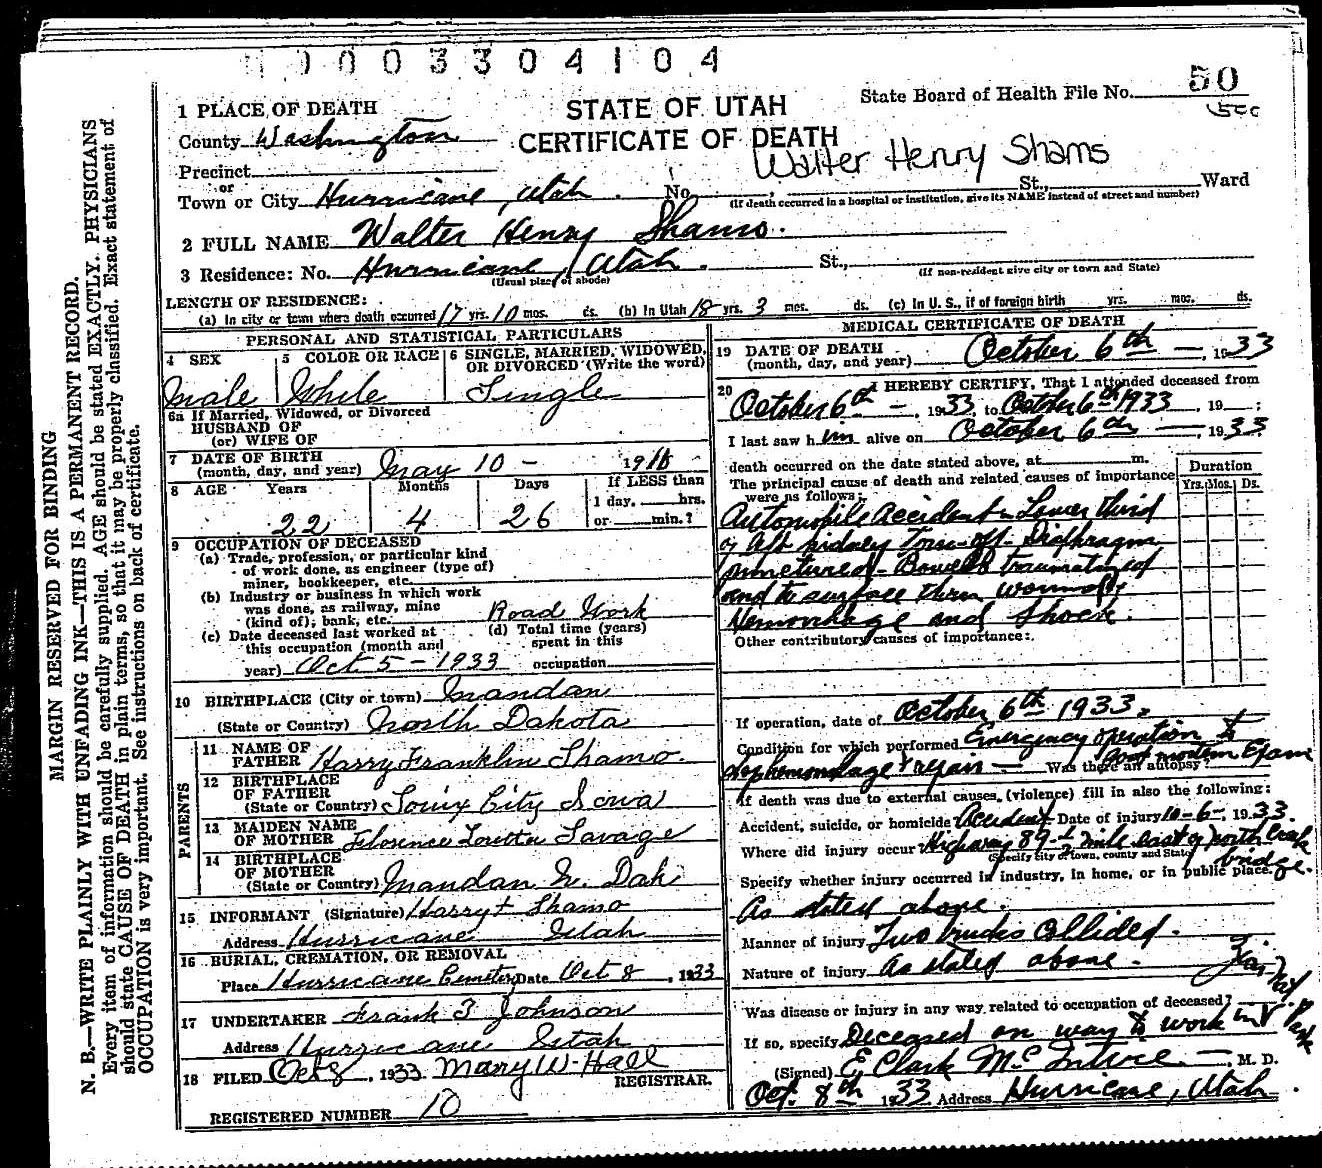 0003304104
50
1 PLACE OF DEATH
STATE OF UTAH
State Board of Health File No.
County Washington
CERTIFICATE OF DEATH
Walter Henry Shams
Precinct
or
Town or City Hurricane, Utah. No. St., Ward
(If death occurred in a hospital or institution, give its NAME instead of street and number)
2 FULL NAME Walter Henry Shamo.
3 Residence: No. Hurricane, Utah. St.,
(Usual place of abode) (If non-resident give city or town and State)
LENGTH OF RESIDENCE:
(a) In city or town where death occurred 17 yrs. 10 mos. ds. (b) In Utah 18 yrs. 3 mos. ds. (c) In U. S., if of foreign birth yrs. mos. ds.
PERSONAL AND STATISTICAL PARTICULARS
4 SEX 5 COLOR OR RACE 6 SINGLE, MARRIED, WIDOWED, OR DIVORCED (Write the word)
Male White Single
6a If Married, Widowed, or Divorced
HUSBAND OF
(or) WIFE OF
7 DATE OF BIRTH
(month, day, and year) May 10 - 191
8 AGE Years Months Days If LESS than
1 day, hrs.
22 4 26 or min.?
9 OCCUPATION OF DECEASED
(a) Trade, profession, or particular kind
of work done, as engineer (type of)
miner, bookkeeper, etc.
(b) Industry or business in which work
was done, as railway, mine
(kind of); bank, etc. Road Work
(c) Date deceased last worked at (d) Total time (years)
this occupation (month and spent in this
year) Oct 5 - 1933 occupation
10 BIRTHPLACE (City or town) Mandan
(State or Country) North Dakota
PARENTS
11 NAME OF
FATHER Harry Franklin Shamo.
12 BIRTHPLACE
OF FATHER
(State or Country) Souix City Iowa
13 MAIDEN NAME
OF MOTHER Florence Savage
14 BIRTHPLACE
OF MOTHER
(State or Country) Mandan N. Dak
15 INFORMANT (Signature) Harry F Shamo
Address Hurricane Utah
16 BURIAL, CREMATION, OR REMOVAL
Place Hurricane Cemetery Date Oct 8, 1933
17 UNDERTAKER Frank T Johnson
Address Hurricane Utah
18 FILED Oct 8, 1933 Mary W. Hall
REGISTRAR.
REGISTERED NUMBER 10
MEDICAL CERTIFICATE OF DEATH
19 DATE OF DEATH
(month, day, and year) October 6th — , 1933
20 I HEREBY CERTIFY, That I attended deceased from
October 6th - , 1933, to October 6th 1933, 19 ;
I last saw him alive on October 6th — , 1933
death occurred on the date stated above, at m.
The principal cause of death and related causes of importance
were as follows:
Duration
Yrs. Mos. Ds.
Automobile Accident - Lower third
of kidney Torn off - Diaphragm
punctured - Bowels traumatized
and to surface thru wounds
Hemorrhage and Shock.
Other contributory causes of importance:
If operation, date of October 6th 1933.
Condition for which performed Emergency operation to
stop hemorrhage & repair — Was there an autopsy? Post mortem Exam
If death was due to external causes (violence) fill in also the following:
Accident, suicide, or homicide Accident Date of injury 10-6-, 1933.
Where did injury occur Highway 89 - ½ mile east of north Creek bridge.
(Specify city or town, county and State)
Specify whether injury occurred in industry, in home, or in public place.
As stated above.
Manner of injury Two trucks collided.
Nature of injury As stated above.
Was disease or injury in any way related to occupation of deceased?
If so, specify Deceased on way to work in Zion Nat Park
(Signed) E Clark McIntire — M. D.
Oct. 8th 1933 Address Hurricane, Utah.
MARGIN RESERVED FOR BINDING
N. B.—WRITE PLAINLY WITH UNFADING INK—THIS IS A PERMANENT RECORD.
Every item of information should be carefully supplied. AGE should be stated EXACTLY. PHYSICIANS
should state CAUSE OF DEATH in plain terms, so that it may be properly classified. Exact statement of
OCCUPATION is very important. See instructions on back of certificate.